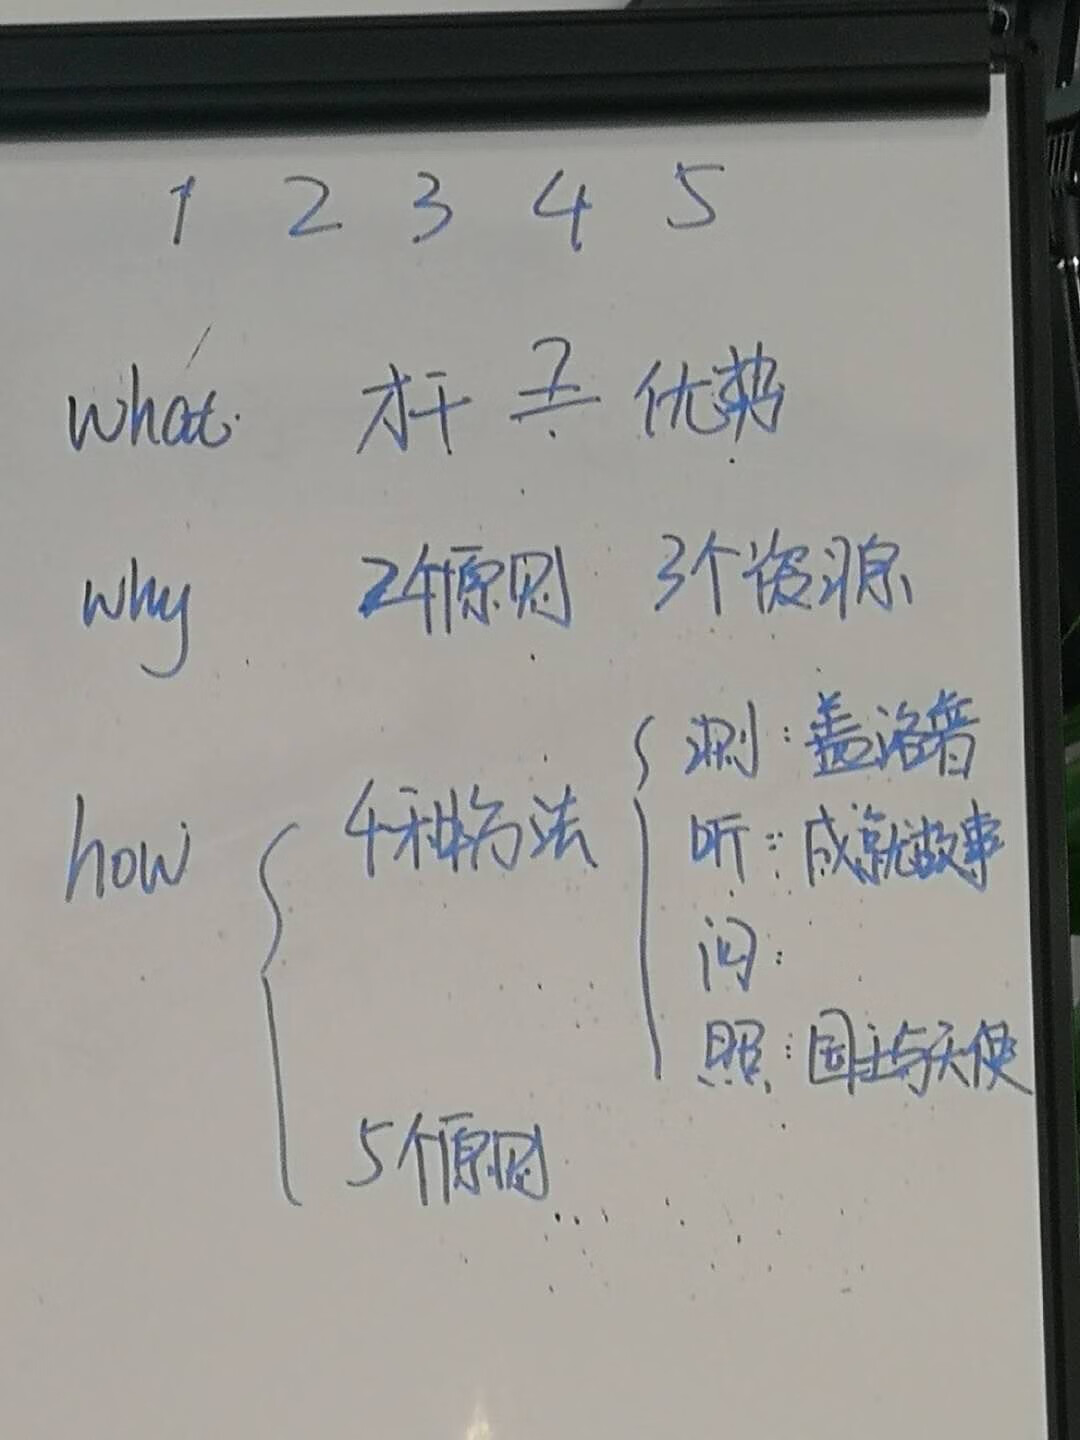 1 2 3 4 5
what 才干 ? 优势
why 2个原则 3个资源
how 4种方法 测：盖洛普
听：成就故事
问：
照：国王与天使
5个原则